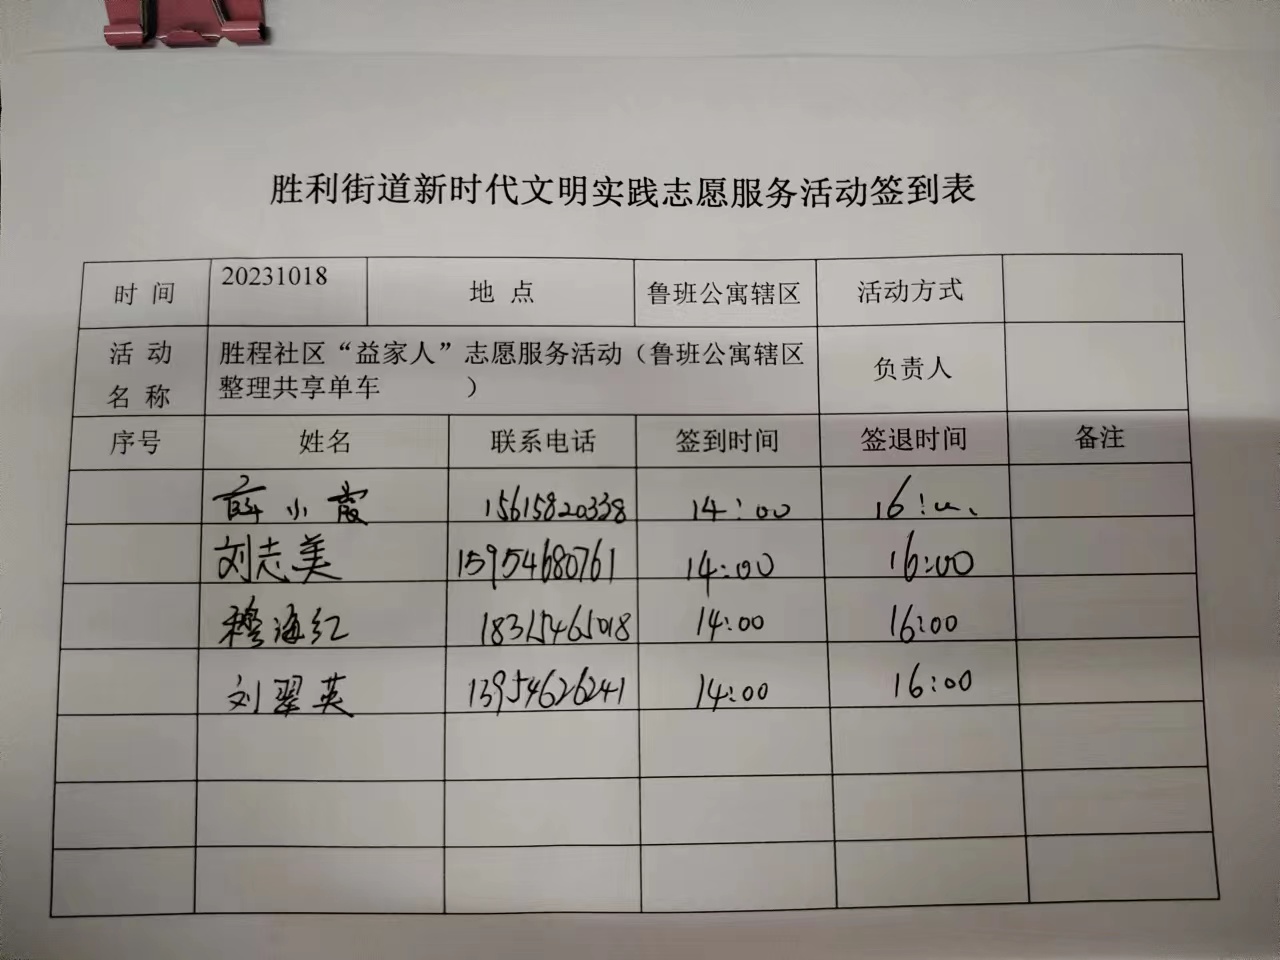 胜利街道新时代文明实践志愿服务活动签到表
时 间 20231018 地 点 鲁班公寓辖区 活动方式
活 动 名 称 胜程社区“益家人”志愿服务活动（鲁班公寓辖区
整理共享单车 ） 负责人
序号 姓名 联系电话 签到时间 签退时间 备注
薛小霞 15615820338 14:00
刘志美 15954680761 14:00 16:00
穆海红 18315465018 14:00 16:00
刘翠英 13954626241 14:00 16:00